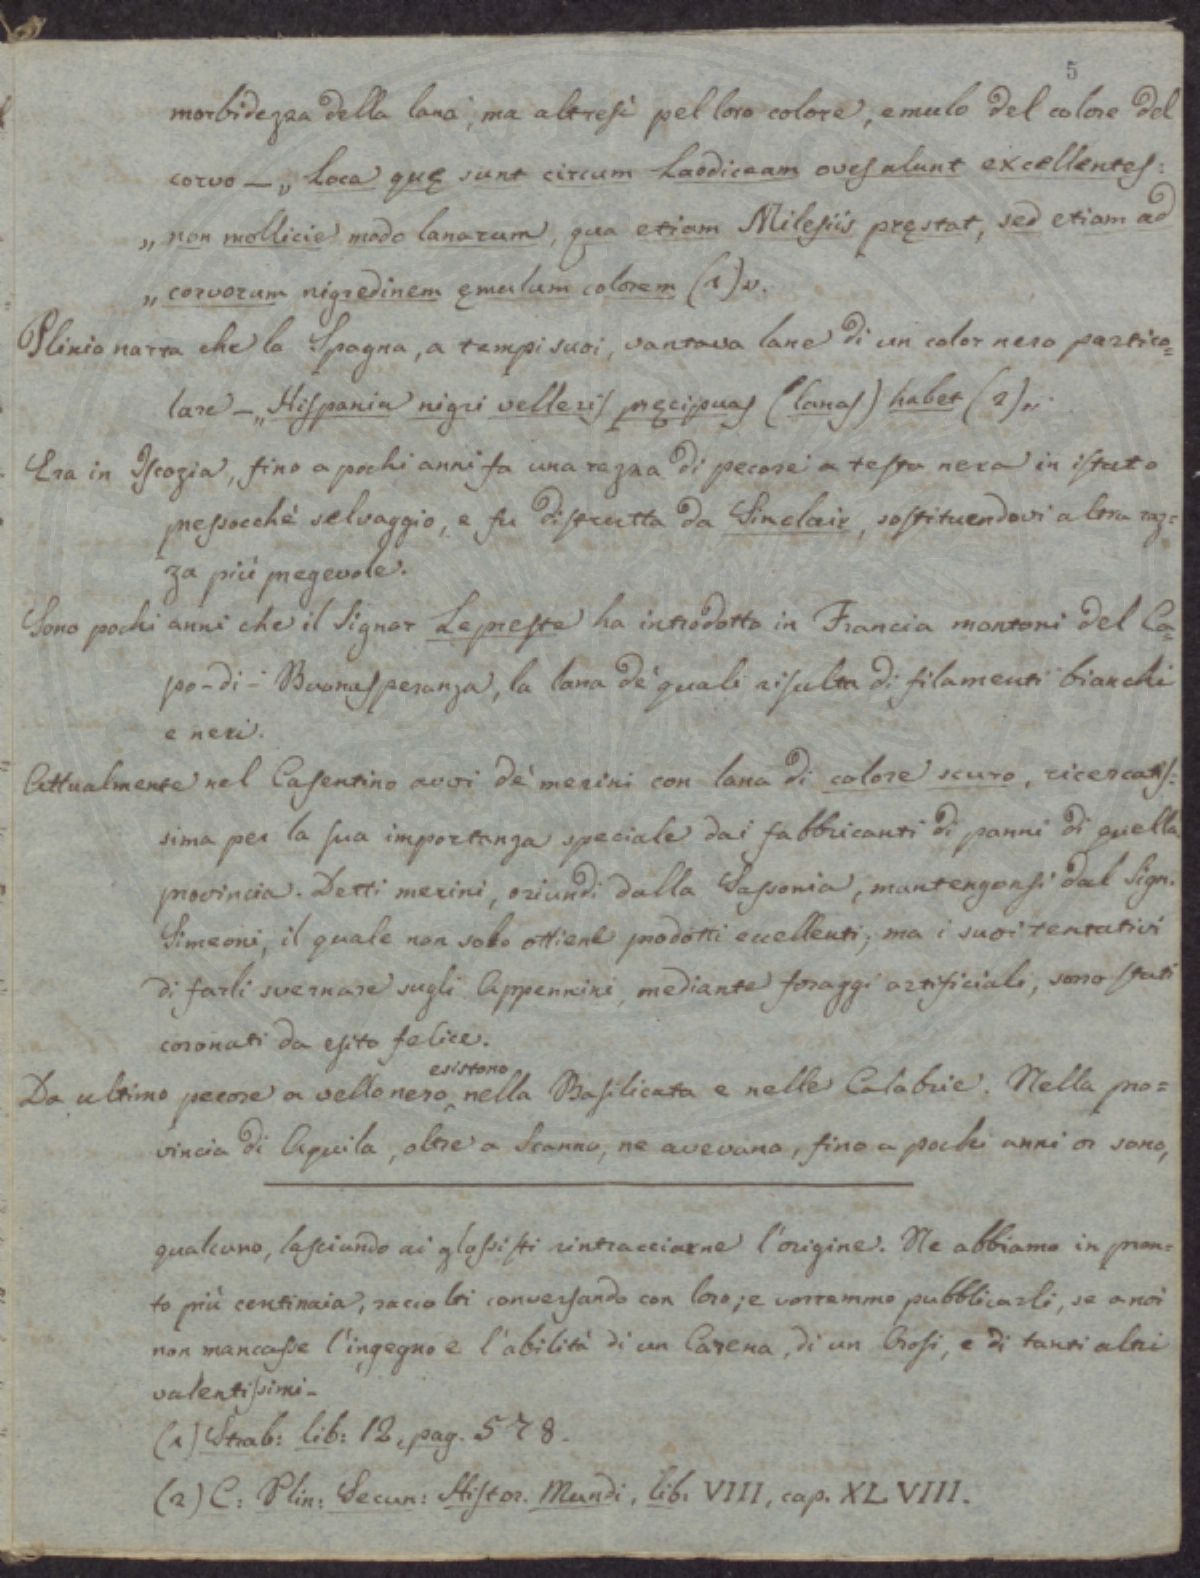 5
morbidezza della lana, ma altresì pel loro colore, emulo del colore del
corvo — „ Loca quę sunt circum Laodiceam oves alunt excellentes:
„ non mollicie modo lanarum, qua etiam Milesiis pręstat, sed etiam ad
„ corvorum nigredinem ęmulum colorem (1) „.
Plinio narra che la Spagna, a tempi suoi, vantava lane di un color nero partico=
lare — „ Hispania nigri velleris pręcipuas (lanas) habet (2) „.
Era in Iscozia, fino a pochi anni fa una razza di pecore a testa nera in istato
pressocchè selvaggio, e fu distrutta da Sinclair, sostituendovi altra raz=
za più pregevole.
Sono pochi anni che il Signor Lepreste ha introdotto in Francia montoni del Ca=
po-di-Buonasperanza, la lana de' quali risulta di filamenti bianchi
e neri.
Attualmente nel Casentino avvi de' merini con lana di colore scuro, ricercatis=
sima per la sua importanza speciale dai fabbricanti di panni di quella
provincia. Detti merini, oriundi dalla Sassonia, mantengonsi dal Sign.
Simeoni, il quale non solo ottiene prodotti eccellenti, ma i suoi tentativi
di farli svernare sugli Appennini, mediante foraggi artificiali, sono stati
coronati da esito felice.
Da ultimo pecore a vello nero esistono nella Basilicata e nelle Calabrie. Nella pro=
vincia di Aquila, oltre a Scanno, ne avevano, fino a pochi anni or sono,
qualcuno, lasciando ai glossisti rintracciarne l'origine. Ne abbiamo in pron=
to più centinaia, raccolti conversando con loro; e vorremmo pubblicarli, se a noi
non mancasse l'ingegno e l'abilità di un Carena, di un Grosi, e di tanti altri
valentissimi —
(1) Strab: lib: 12, pag. 578.
(2) C: Plin: Secun: Histor. Mundi, lib. VIII, cap. XLVIII.